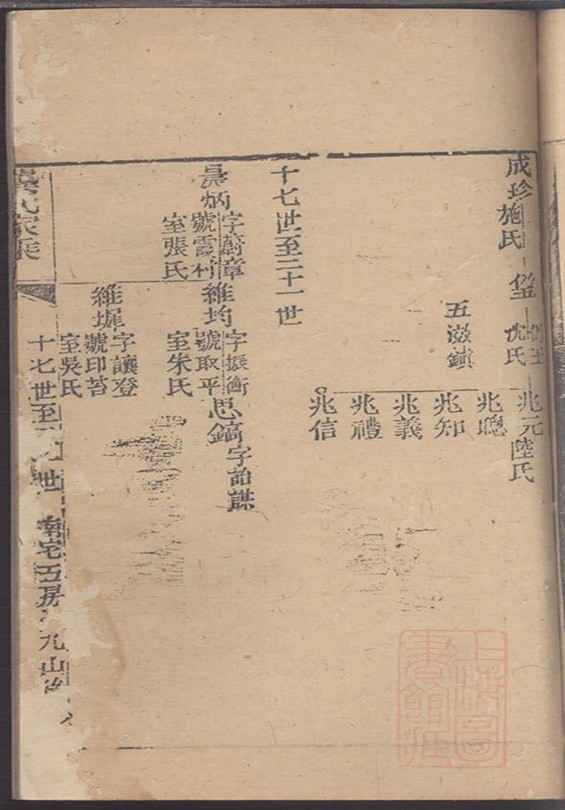 成珍
施氏
沈氏
五滋鎮
兆元陸氏
兆聰
兆知
兆義
兆禮
兆信
十七世至二十一世
昊炳
字蔚章
號霞村
室張氏
維均
字振衡
號取平
室朱氏
思鎬
字詒謀
維墀
字讓登
號印苔
室吳氏
十七世至
世
南宅五房
九山
吳氏家乘